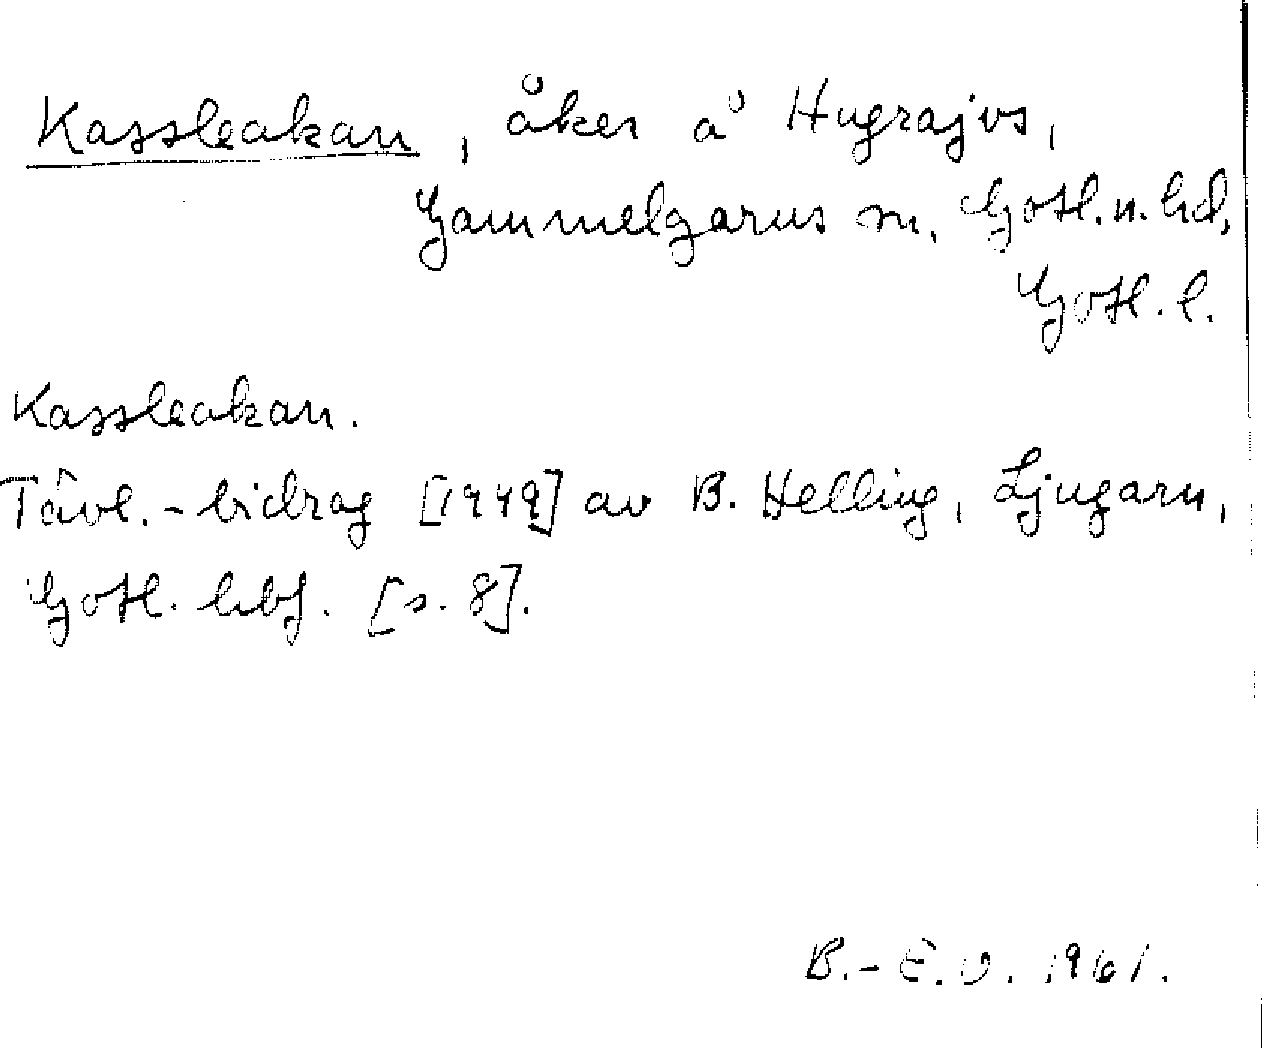 Kassleakan, åker å Hugrajvs,
Gammelgarns sn, Gotl. n. hd,
Gotl. l.
Kassleakan.
Tävl.-bidrag [1949] av B. Helling, Ljugarn,
Gotl. hbf. [s. 8].
B.-E. O. 1961.